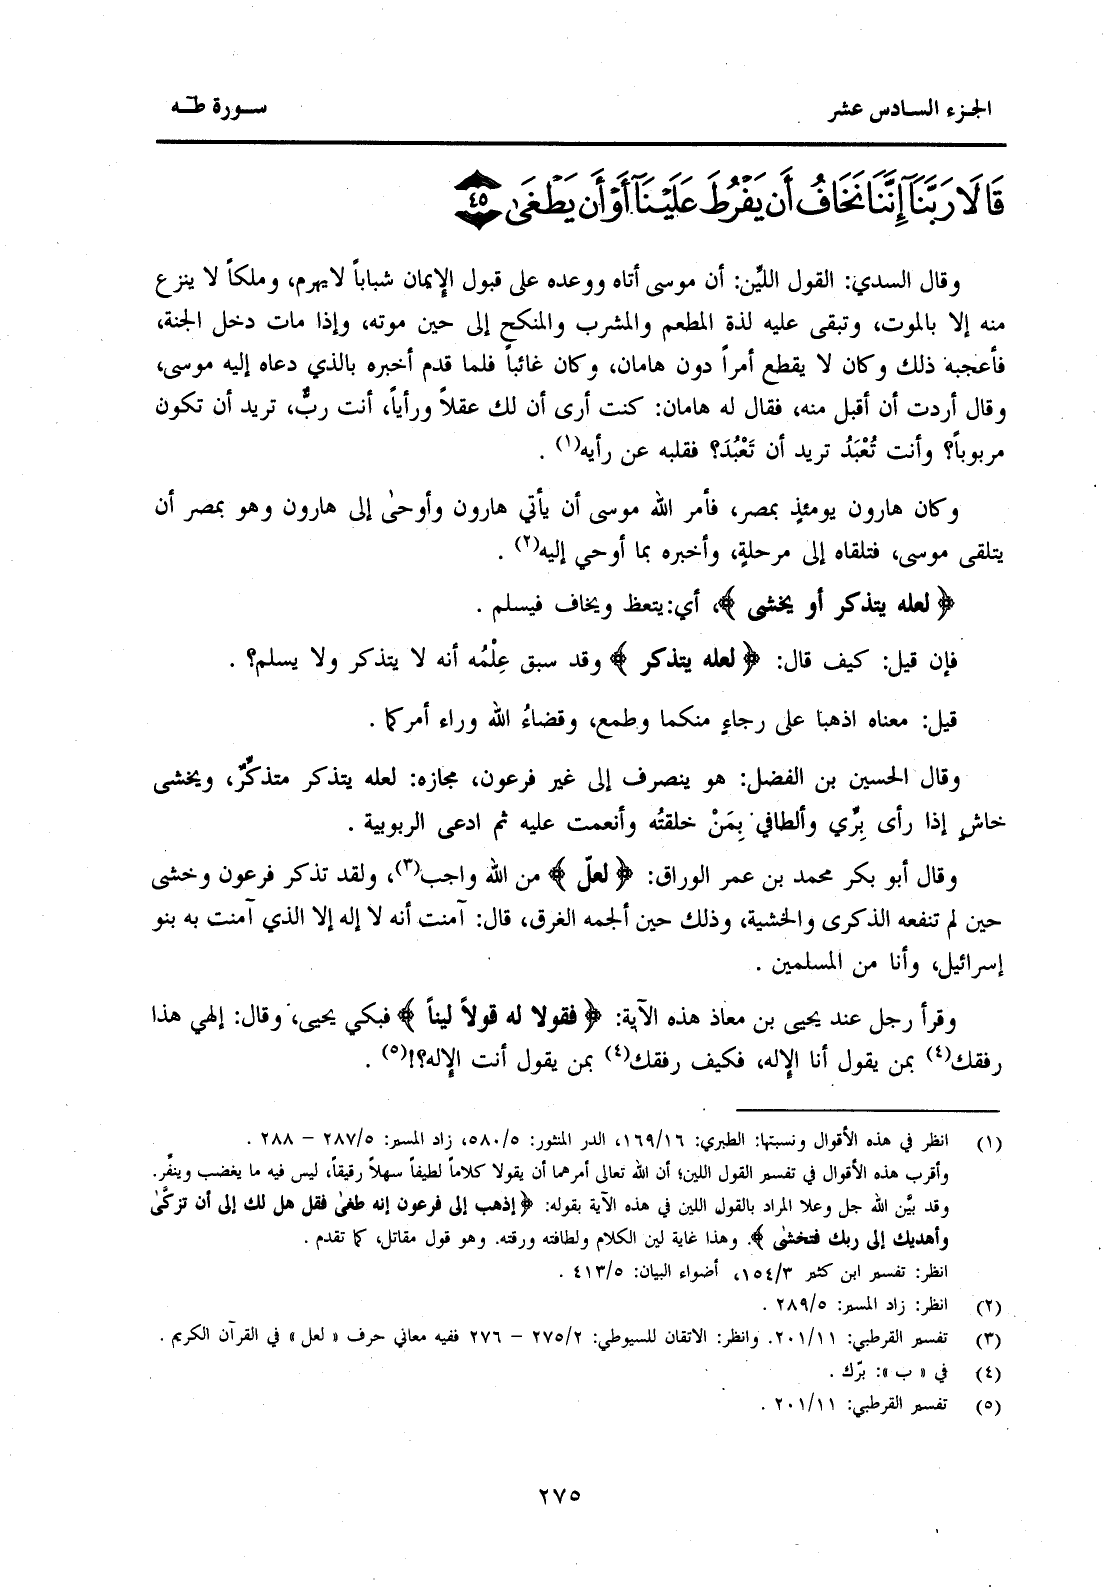 الجزء السادس عشر
سورة طه
قَالَا رَبَّنَآ إِنَّنَا نَخَافُ أَن يَفْرُطَ عَلَيْنَآ أَوْ أَن يَطْغَىٰ ﴿٤٥﴾
وقال السدي: القول الليِّن: أن موسى أتاه ووعده على قبول الإيمان شباباً لايهرم، وملكاً لا ينزع
منه إلا بالموت، وتبقى عليه لذة المطعم والمشرب والمنكح إلى حين موته، وإذا مات دخل الجنة،
فأعجبه ذلك وكان لا يقطع أمراً دون هامان، وكان غائباً فلما قدم أخبره بالذي دعاه إليه موسى،
وقال أردت أن أقبل منه، فقال له هامان: كنت أرى أن لك عقلاً ورأياً، أنت ربٌّ، تريد أن تكون
مربوباً؟ وأنت تُعْبَدُ تريد أن تَعْبُدَ؟ فقلبه عن رأيه(١) .
وكان هارون يومئذٍ بمصر، فأمر الله موسى أن يأتي هارون وأوحىٰ إلى هارون وهو بمصر أن
يتلقى موسى، فتلقاه إلى مرحلةٍ، وأخبره بما أوحي إليه(٢) .
﴿ لعله يتذكر أو يخشى ﴾، أي: يتعظ ويخاف فيسلم .
فإن قيل: كيف قال: ﴿ لعله يتذكر ﴾ وقد سبق عِلْمُه أنه لا يتذكر ولا يسلم؟ .
قيل: معناه اذهبا على رجاءٍ منكما وطمع، وقضاءُ الله وراء أمركما .
وقال الحسين بن الفضل: هو ينصرف إلى غير فرعون، مجازه: لعله يتذكر متذكِّرٌ، ويخشى
خاشٍ إذا رأى بِرِّي وألطافي بِمَنْ خلقتُه وأنعمت عليه ثم ادعى الربوبية .
وقال أبو بكر محمد بن عمر الوراق: ﴿ لعلّ ﴾ من الله واجب(٣)، ولقد تذكر فرعون وخشى
حين لم تنفعه الذكرى والخشية، وذلك حين ألجمه الغرق، قال: آمنت أنه لا إله إلا الذي آمنت به بنو
إسرائيل، وأنا من المسلمين .
وقرأ رجل عند يحيى بن معاذ هذه الآية: ﴿ فقولا له قولاً ليناً ﴾ فبكي يحيى، وقال: إلهي هذا
رفقك(٤) بمن يقول أنا الإله، فكيف رفقك(٤) بمن يقول أنت الإله؟!(٥) .
(١) انظر في هذه الأقوال ونسبتها: الطبري: ١٦٩/١٦، الدر المنثور: ٥٨٠/٥، زاد المسير: ٢٨٧/٥ – ٢٨٨ .
وأقرب هذه الأقوال في تفسير القول اللين؛ أن الله تعالى أمرهما أن يقولا كلاماً لطيفاً سهلاً رقيقاً، ليس فيه ما يغضب وينفِّر.
وقد بيَّن الله جل وعلا المراد بالقول اللين في هذه الآية بقوله: ﴿ إذهب إلى فرعون إنه طغىٰ فقل هل لك إلى أن تزكَّىٰ
وأهديك إلى ربك فتخشىٰ ﴾. وهذا غاية لين الكلام ولطافته ورقته. وهو قول مقاتل، كما تقدم .
انظر: تفسير ابن كثير ١٥٤/٣، أضواء البيان: ٤١٣/٥ .
(٢) انظر: زاد المسير: ٢٨٩/٥ .
(٣) تفسير القرطبي: ٢٠١/١١. وانظر: الاتقان للسيوطي: ٢٧٥/٢ – ٢٧٦ ففيه معاني حرف « لعل » في القرآن الكريم .
(٤) في « ب »: برّك .
(٥) تفسير القرطبي: ٢٠١/١١ .
٢٧٥